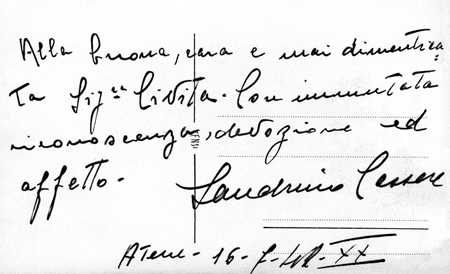 Alla buona, cara e mai dimentica
ta Sig.ra Civita. Con immutata
riconoscenza, devozione ed
affetto.
Sandrino
Atene - 16-7-42-XX